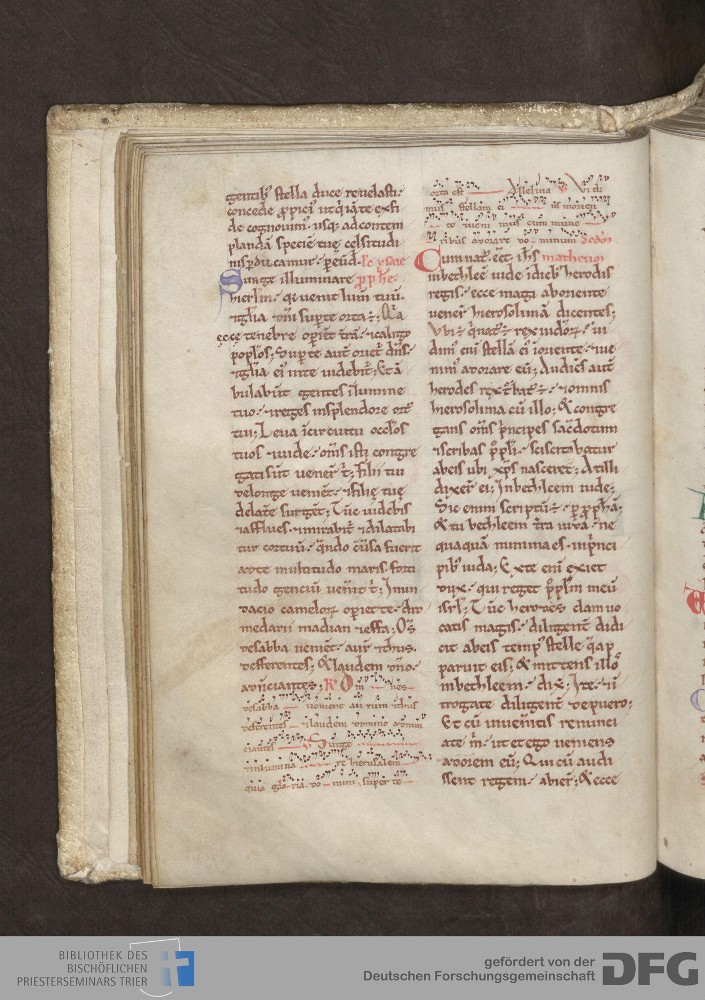 gentib' stella duce revelasti·
concede ꝓpiciꝰ ut q̇ iā te ex fi
de cognovimꝰ· usq; ad contem
plandā speciē tuę celsitudi
nis ꝑducamur· per eūd· Lc ysaie
Surge illuminare ꝓphe·
hierłm· qi venit lum̄ tuū·
⁊ gła dn̄i sup te orta ē· Q̇a
ecce tenebre operiēt t̄ra· ⁊ caligo
popłos; Sup te aut̄ oriet̄ dn̄s·
⁊ głia ei' in te videbit̄; Et ā
bulabūt gentes i lumine
tuo· ⁊ reges in splendore ort'
tui; Leva i circuitu oc̄los
tuos ⁊ vide· om̄s isti congre
gati sūt vener̄ t'; Filii tui
de longe veniēt· ⁊ filię tuę
de laťe surgēt; Tūc videbis
⁊ afflues· ⁊ mirabit̄ ⁊ dilatabi
tur cor tuū· q̄ndo cōv̄sa fuerit
ad te multitudo maris· forti
tudo genciū ven̄it t'; Inun
dacio cameloꝝ operiet te· dro
medarii madian ⁊ effa; Om̄s
de sabba veniēt· aurū ⁊ thus·
deferentes; & laudem dn̄o·
adn̄ciantes; R' Om nes
de sabba venient au rum ⁊ thus
deferentes ⁊ laudem domino adnun
ciantes V Surge
⁊ inlumina re hierusalem
quia glo ria do mini super te
orta est Alleluia V Vi di
mus stellam ei us in orien
te ⁊ veni mus cum mune
ribus adorare do minum
Cum nat' eēt ihs matheum
in bethleē iude i dieb' herodis
regis· ecce magi ab oriente
vener̄ hierosolimā dicentes;
Vbi ē q̇ nat' ē· rex iudeoꝝ· vi
dim' eni stellā ei' i oriente· ⁊ ve
nim' adorare eū; Audiēs aut̄
herodes rex t'bat' ē· ⁊ omnis
hierosolima cū illo; & congre
gans om̄s p'ncipes sac̄dotum
⁊ scribas ppłi· sciscitabatur
ab eis ubi xp̄s nasceret̄; At illi
dixer̄ ei; In bethleem iude;
Sic enim scriptū ē· p ꝓphā;
& tu bethleem t̄ra iuda· ne
quaquā minima es· in p'nci
pib' iuda; Ex te eni exiet
dux· qui reget ppłm meū
isrł; Tūc herodes clam vo
catis magis· diligent̄ didi
cit ab eis temp' stelle q̄ ap
paruit eis; & mittens illos
in bethleem· dix̄; Ite· ⁊ in
trogate diligent̄ de puero;
Et cū inven̄itis renunci
ate m'· ut et ego veniens
adorem eū; Qui cū audi
ssent regem· abier̄; & ecce
BIBLIOTHEK DES
BISCHÖFLICHEN
PRIESTERSEMINARS TRIER
gefördert von der
Deutschen Forschungsgemeinschaft
DFG